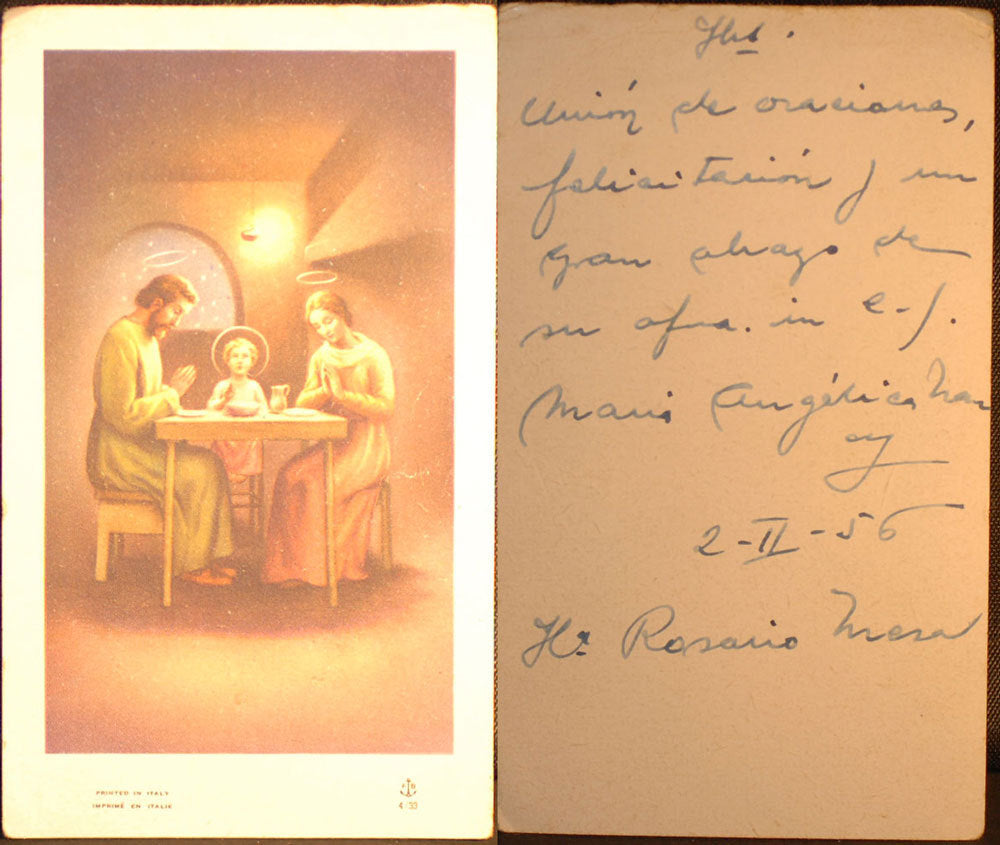 PRINTED IN ITALY
IMPRIMÉ EN ITALIE
4-33
Unión de oraciones,
felicitación y un
gran abrazo de
su afma. in C. J.
Maria Angélica
2-II-56
Hª Rosario Mesa